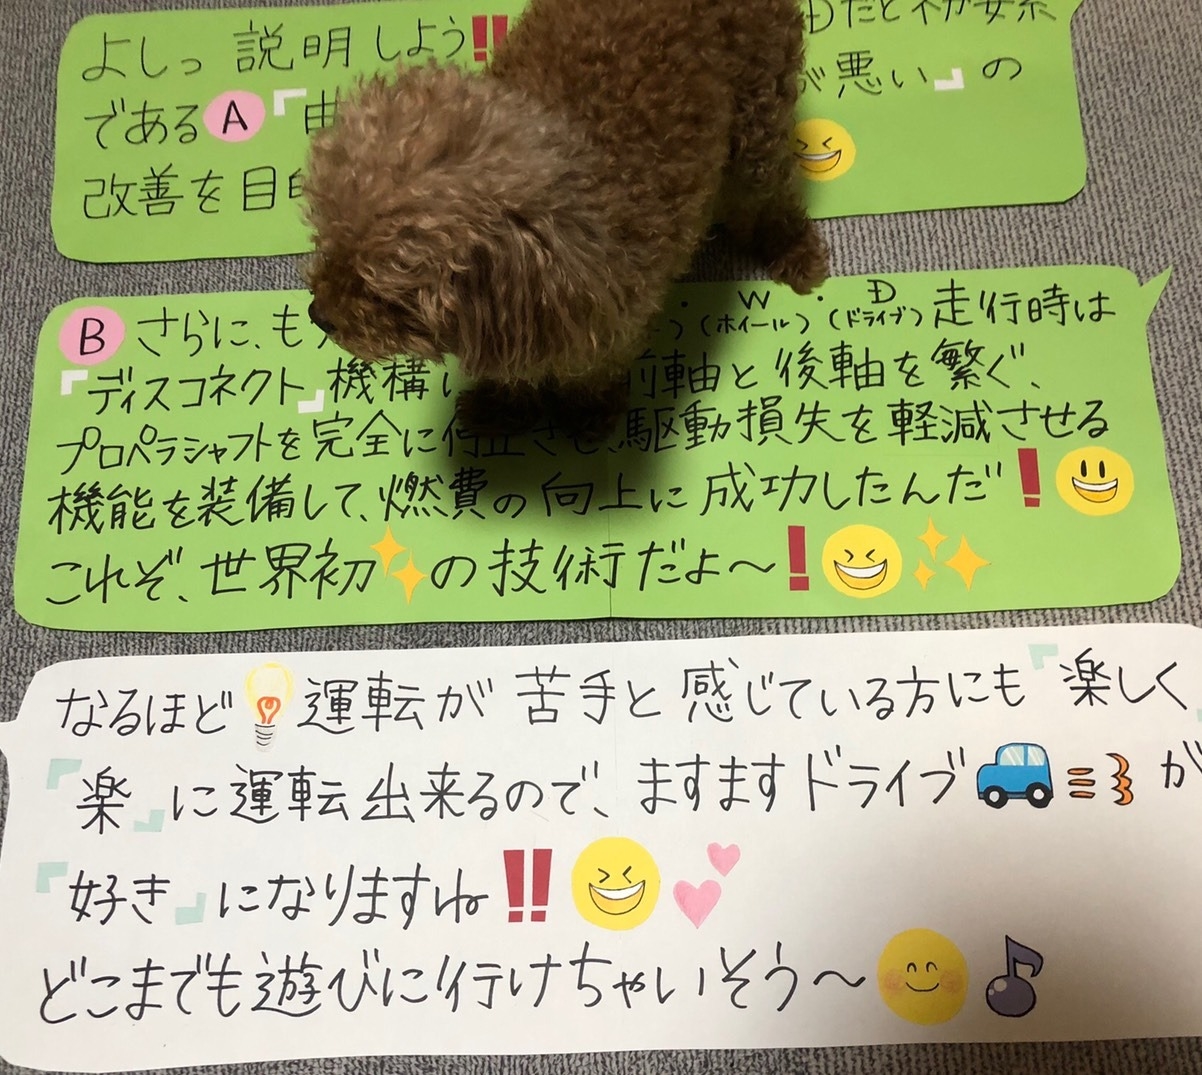 よしっ説明しよう‼
が悪い』の
である A 『
改善を目
B さらに、も
W・D
(ホイール)(ドライブ)走行時は
『ディスコネクト』機構 前軸と後軸を繋ぐ、
プロペラシャフトを完全に停止させ、駆動損失を軽減させる
機能を装備して、燃費の向上に成功したんだ❗😃
これぞ、世界初✨の技術だよ〜❗😆✨
なるほど💡運転が苦手と感じている方にも『楽しく』
『楽』に運転出来るので、ますますドライブ🚙💨が
『好き』になりますね‼😆💕
どこまでも遊びに行けちゃいそう〜😊♪